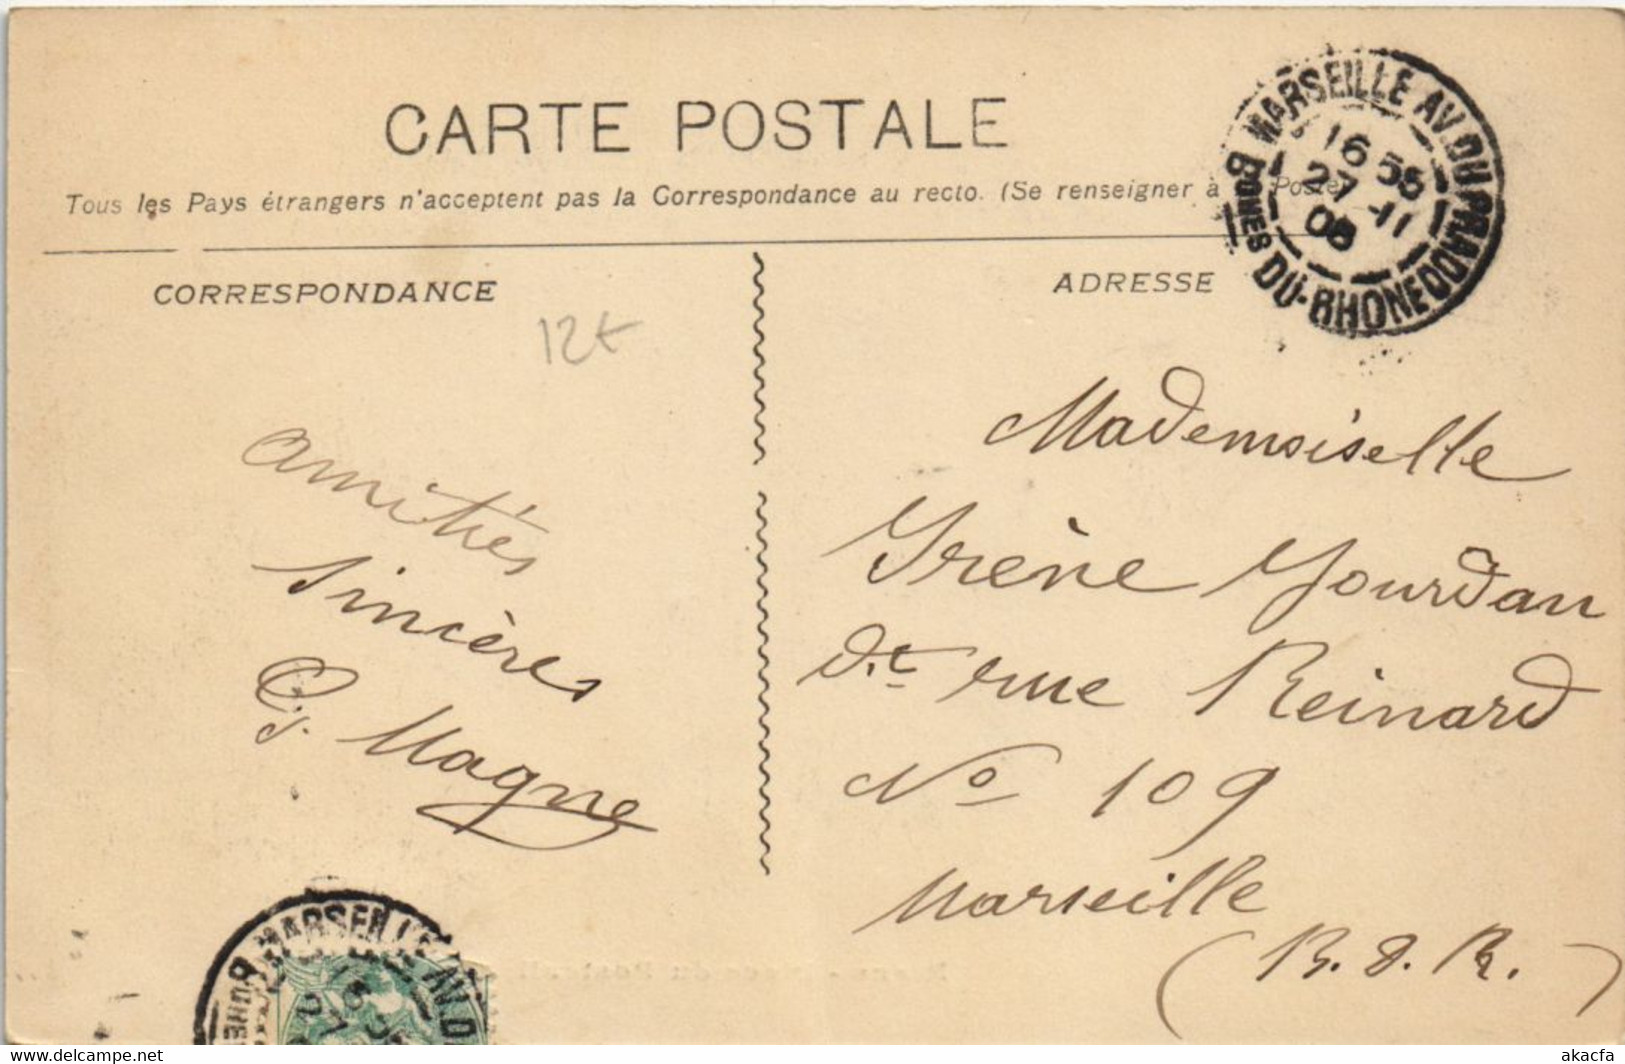 CARTE POSTALE
Tous les Pays étrangers n'acceptent pas la Correspondance au recto. (Se renseigner à Poste
CORRESPONDANCE
ADRESSE
MARSEILLE AV. DU PRADO
16 55
27 -11
05
BOUCHES DU-RHONE
12€
Amitiés
sincères
G. Magne
Mademoiselle
Yrène Yourdan
Bt rue Reinard
No 109
Marseille
(B. d. R.)
MARSEILLE AV. D
27
www.delcampe.net
akacfa